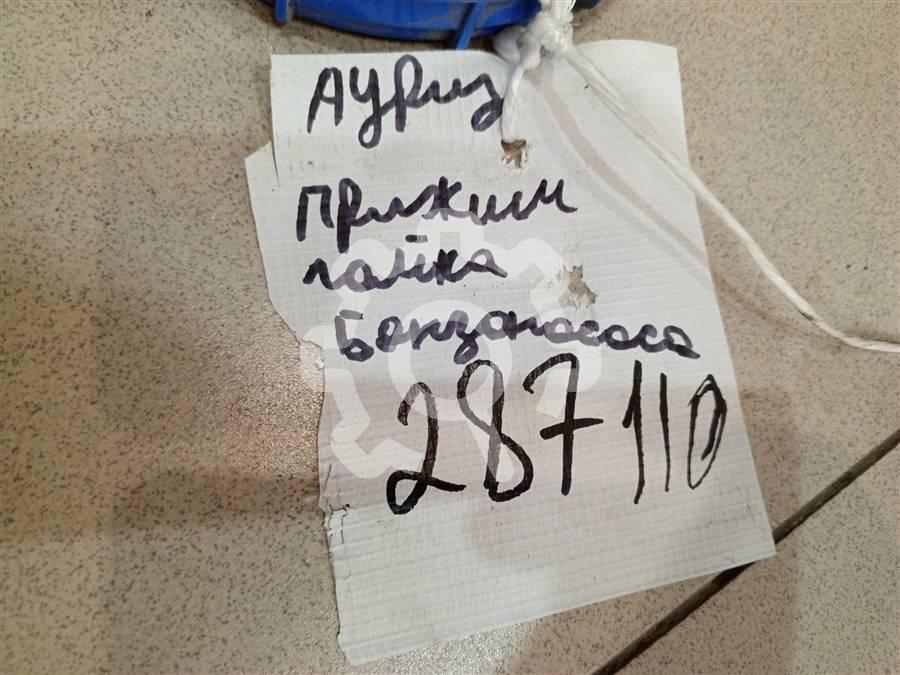 Ауриз
Прижим
гайка
Бензонасоса
287110